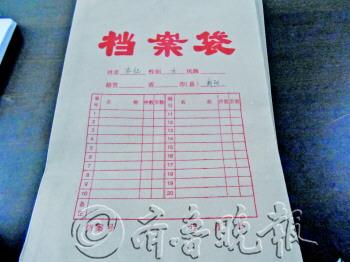 档案袋
姓名 性别 女 民族
籍贯 省 市(县)
编号 名称 件数 页数 编号 名称 件数 页数
1 11
2 12
3 13
4 14
5 15
6 16
7 17
8 18
9 19
10 20
备注
齐鲁晚报